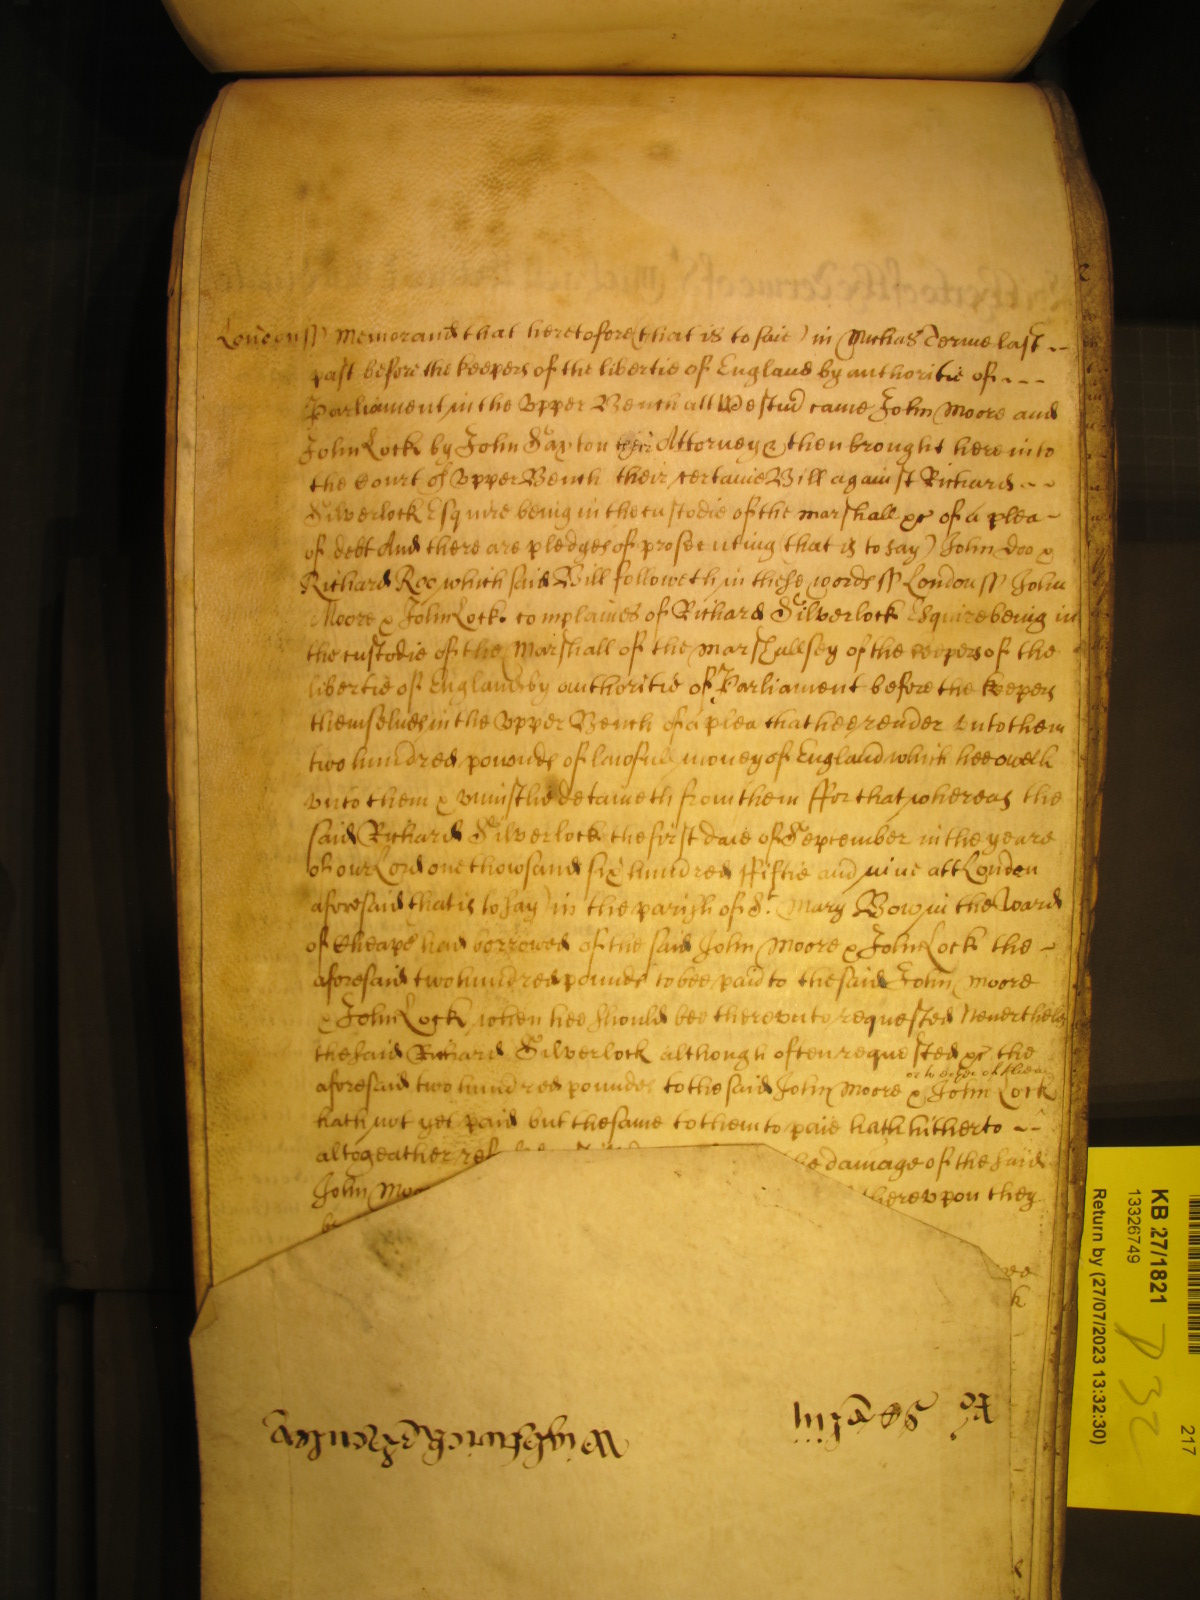 London ss Memorand that heretofore (that is to saie) in Michas Terme last
past before the keepers of the libertie of England by authoritie of
Parliament in the Upper Bench att Westm came John Moore and
John Lock by John Saxton their Attorney & then brought here into
the Court of Upper Bench their certaine Bill against Richard
Silverlock Esquire being in the custodie of the marshall &c of a plea
of debt And there are pledges of prosecuting that is to say) John Doo &
Richard Roo which said Bill followeth in these words ss London ss John
Moore & John Lock complaines of Richard Silverlock Esquire being in
the custodie of the Marshall of the marshallsey of the keepers of the
libertie of England by authoritie of Parliament before the keepers
themselves in the Upper Bench of a plea that hee render unto them
two hundred pounds of lawfull money of England which hee oweth
unto them & uniustlie detaineth from them ffor that whereas the
said Richard Silverlock the first daie of September in the yeare
of our Lord one thowsand six hundred ffiftie and nine att London
aforesaid that is to say) in the parish of St Mary Bow in the Ward
of Cheape had borrowed of the said John Moore & John Lock the
aforesaid two hundred pounds to bee paid to the said John Moore
& John Lock when hee should bee thereunto requested Neverthelesse
the said Richard Silverlock although often requested &c the
aforesaid two hundred pounds to the said John Moore & John Lock
or to either of them
hath not yet paid but the same to them to paie hath hitherto
altogeather the damage of the said
John Moo thereupon they
Ro
Wightwick & Henley
KB 27/1821
13326749
Return by (27/07/2023 13:32:30)
217